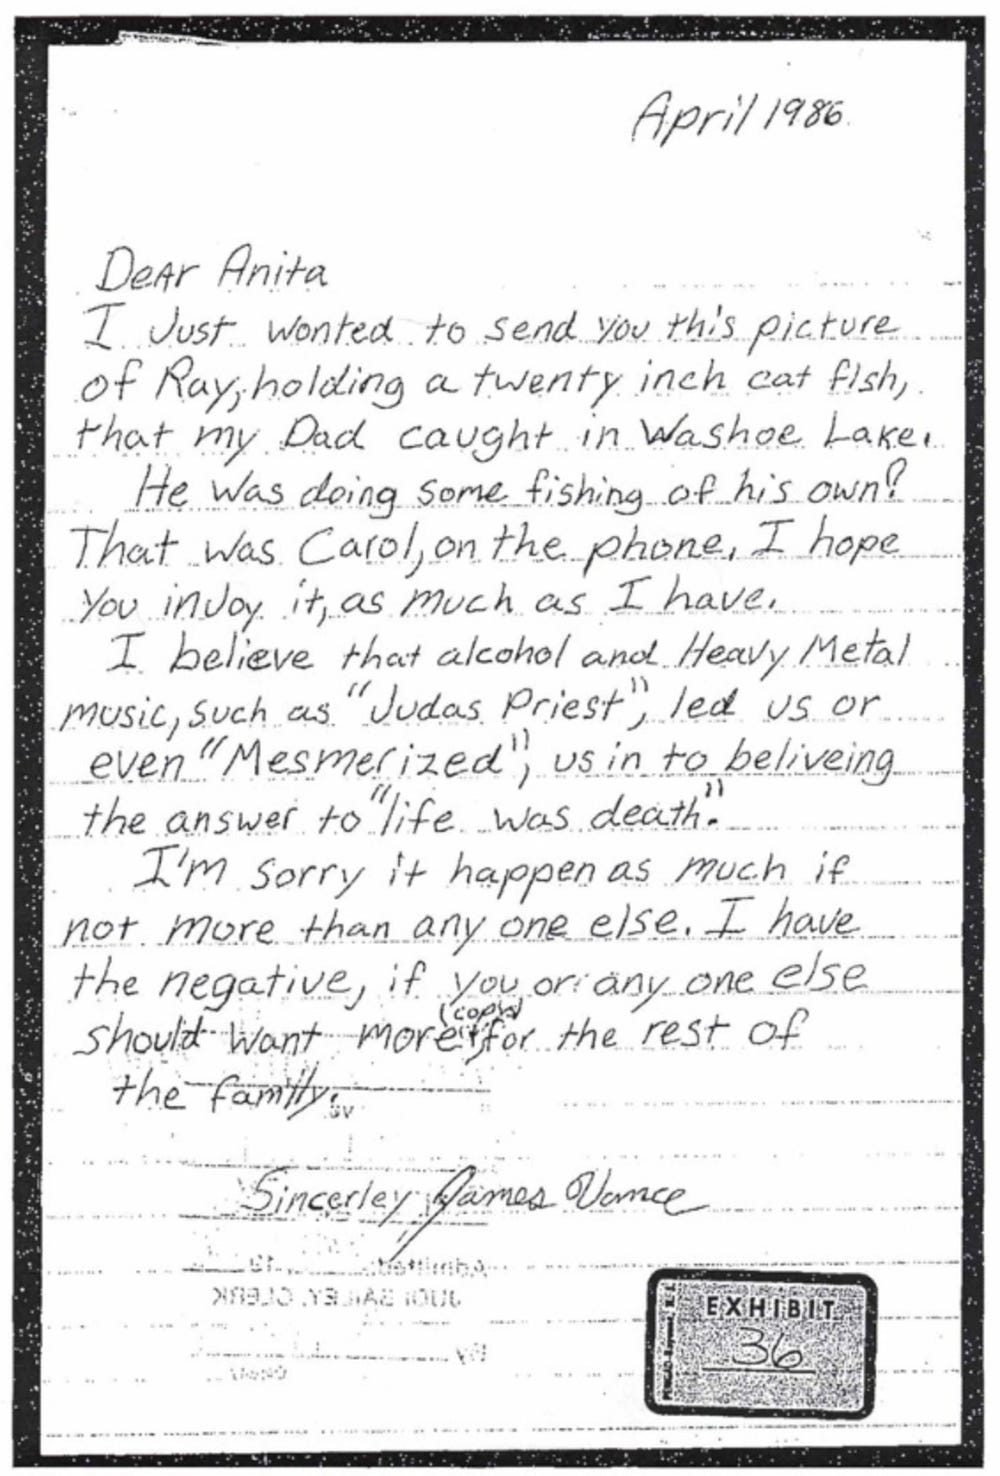 April 1986.
Dear Anita
I Just wonted to send you this picture
of Ray, holding a twenty inch cat fish,
that my Dad caught in Washoe Lake.
He was doing some fishing of his own?
That was Carol, on the phone. I hope
you inJoy it, as much as I have.
I believe that alcohol and Heavy Metal
music, such as "Judas Priest", led us or
even "Mesmerized", us in to beliveing
the answer to "life was death".
I'm sorry it happen as much if
not more than any one else. I have
the negative, if you or any one else
(copys)
should want more, for the rest of
the family.
Sincerley James Vance
Admitted: 19
JUDI BAILEY, CLERK
By
Deputy
EXHIBIT
36